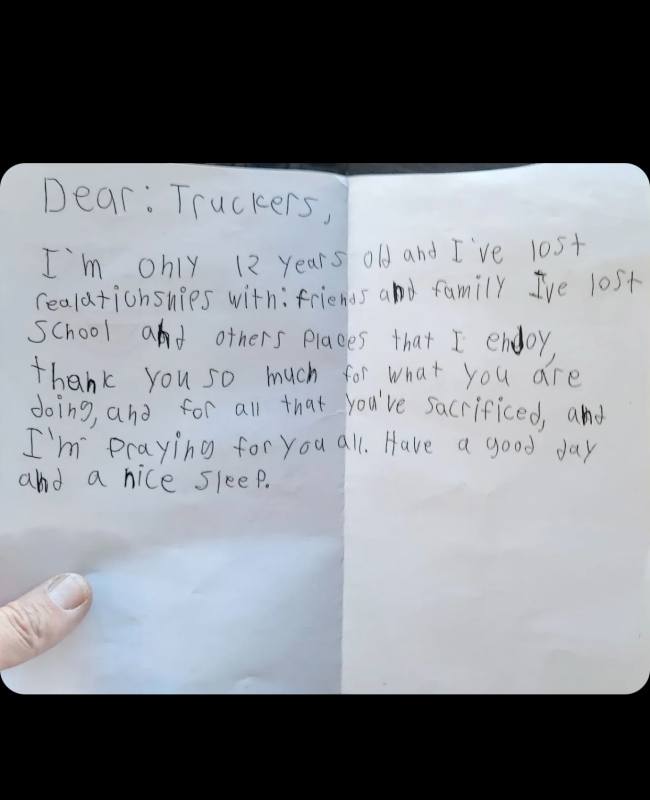 Dear: Truckers,
I'm only 12 years old and I've lost
realationships with: friends and family I've lost
School and others places that I enjoy,
thank you so much for what you are
doing, and for all that you've sacrificed, and
I'm praying for you all. Have a good day
and a nice sleep.